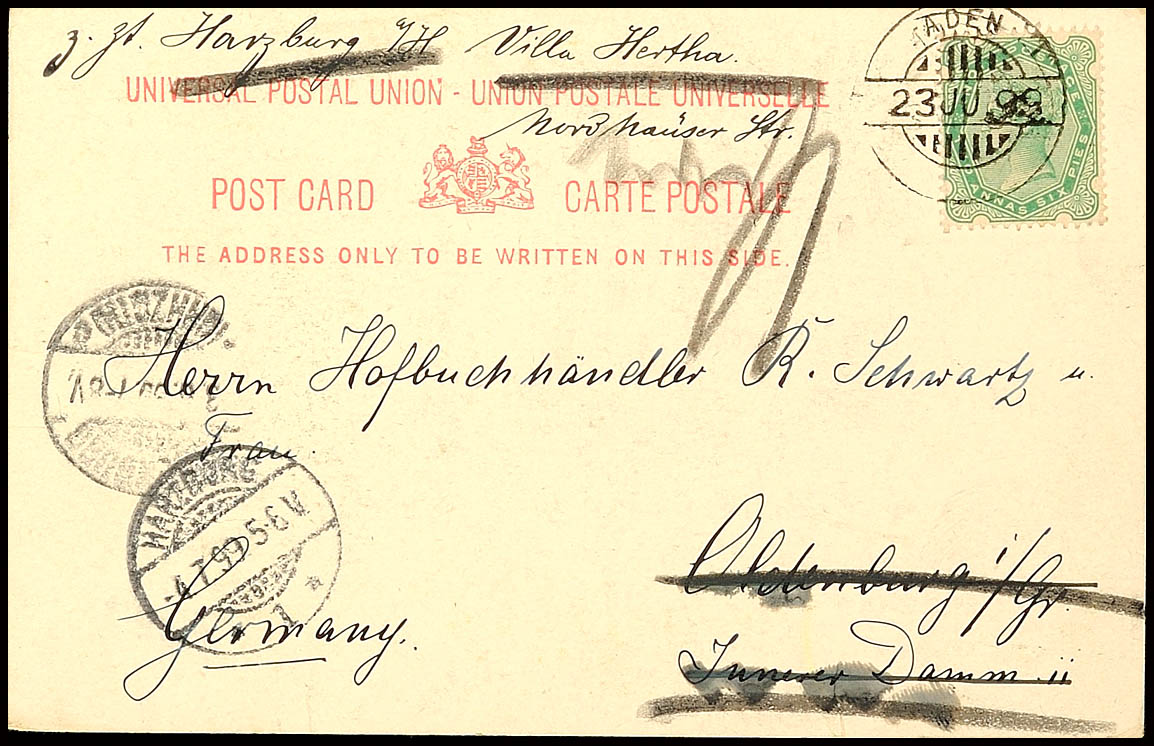 z. Zt. Harzburg a/H Villa Hertha.
UNIVERSAL POSTAL UNION - UNION POSTALE UNIVERSELLE
Nordhäuser Str.
POST CARD CARTE POSTALE
THE ADDRESS ONLY TO BE WRITTEN ON THIS SIDE.
ADEN
23 JU 99
ANNAS SIX PIES
Herrn Hofbuchhändler R. Schwartz u.
Frau.
HARZBURG
4.7.99 5-6 N
1
Oldenburg i/Gr.
Germany.
Innerer Damm 11